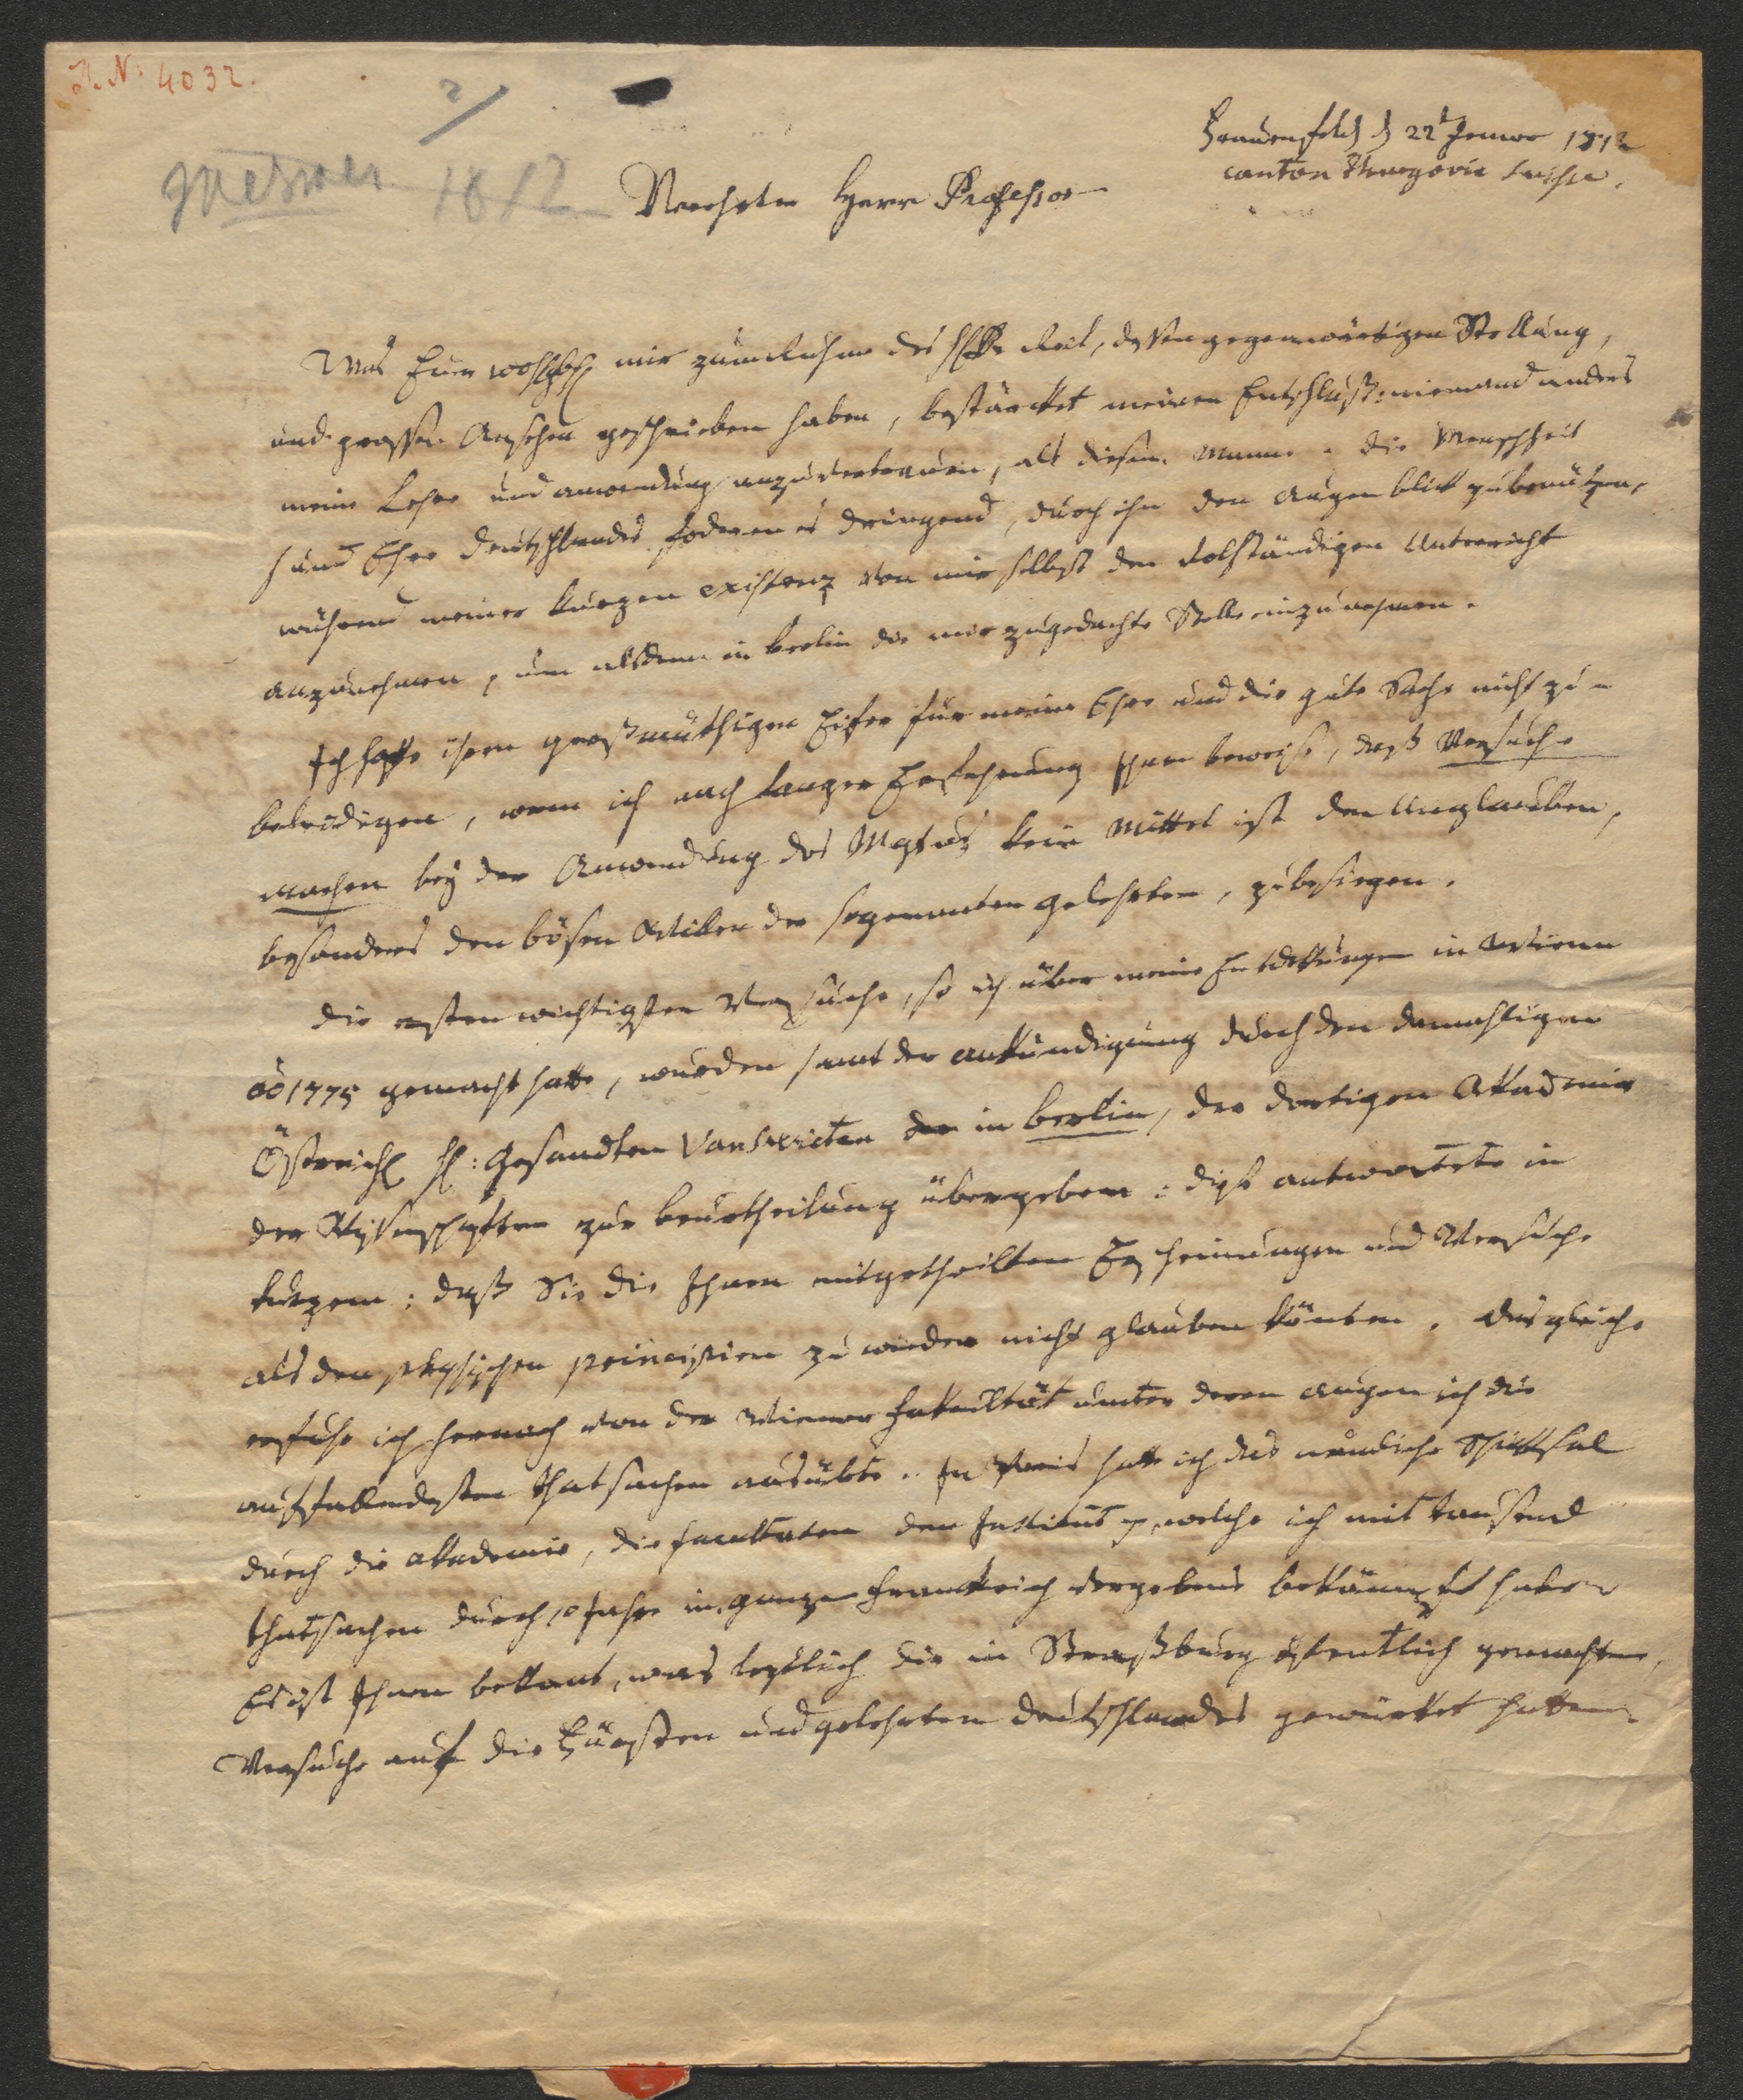 H. N: 4032.
2/
Mesmer 1812
Frauenfeld d 22t Jenner 1812
canton Thurgovie
Verehrter Herr Professor
Was Euer wohlgb mir zum Ruhme des H. Reil, dessen gegenwärtigen Stellung,
und grossen Ansehen geschrieben haben, bestärcket meinen Entschluß: niemand anders
meine Lehre und anwendung anzuvertrauen, als diesem Manne. die Menschheit
und Ehre deutschlandes foderen es dringend, durch ihn den augenblick zu benützen,
während meiner kurzen existenz von mir selbst den volständigen Unterricht
anzunehmen, um alsdann in berlin die mir zugedachte Stelle einzunehmen.
Ich hoffe ihren großmüthigen Eifer für meine Ehre und die gute Sache nicht zu
beleidigen, wenn ich nach langer Erfahrung ihnen beweise, daß Versuche
machen bey der Anwendung des Mgtus kein Mittel ist den Unglauben,
besonders den bösen Willen der sogenannten gelehrten, zu besiegen.
die ersten wichtigsten Versuche, so ich über meine Entdekungen in Wienn
ao 1775 gemacht hatte, wurden samt der ankündigung durch den damahligen
Östreich H: Gesandten Vanswieten der in berlin, der dortigen Akademie
der Wissenschaften zur beurtheilung übergeben: diese antwortete in
kurzem: daß Sie die Ihnen mitgetheilten Erscheinungen und Versuche
als den physischen principien zu wieder nicht glauben könten. das gleiche
erfuhr ich hernach von der Wiener fakultät unter deren augen ich die
auffallendsten thatsachen ausübte. In Paris hatte ich das nämliche Schicksal
durch die akademie, die facultaten den Institut, welche ich mit tausend
thatsachen durch 10 Jahre in ganz franckreich vergebens bekämpft habe
Es ist Ihnen bekant, was letztlich die in Straßburg öffentlich gemachten
Versuche auf die Fürsten und gelehrten deutschlandes gewürket hatten